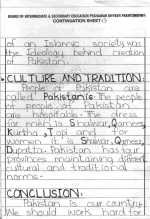 BOARD OF INTERMEDIATE & SECONDARY EDUCATION PESHAWAR KHYBER PAKHTUNKHWA
CONTINUATION SHEET-
of an Islamic society was
the Ideology behind creation
of Pakistan.
CULTURE AND TRADITION:
People of Pakistan are
called "Pakistanis". The people
of people of Pakistan
are respectable. The dress
for men is Shalwar, Qameez,
Kurtha, Topi and for
women is Shalwar, Qameez,
Dupatta. Pakistan has four
provinces maintaining different
cultural and traditional
norms.
CONCLUSION:
Pakistan is our country.
We should work hard for